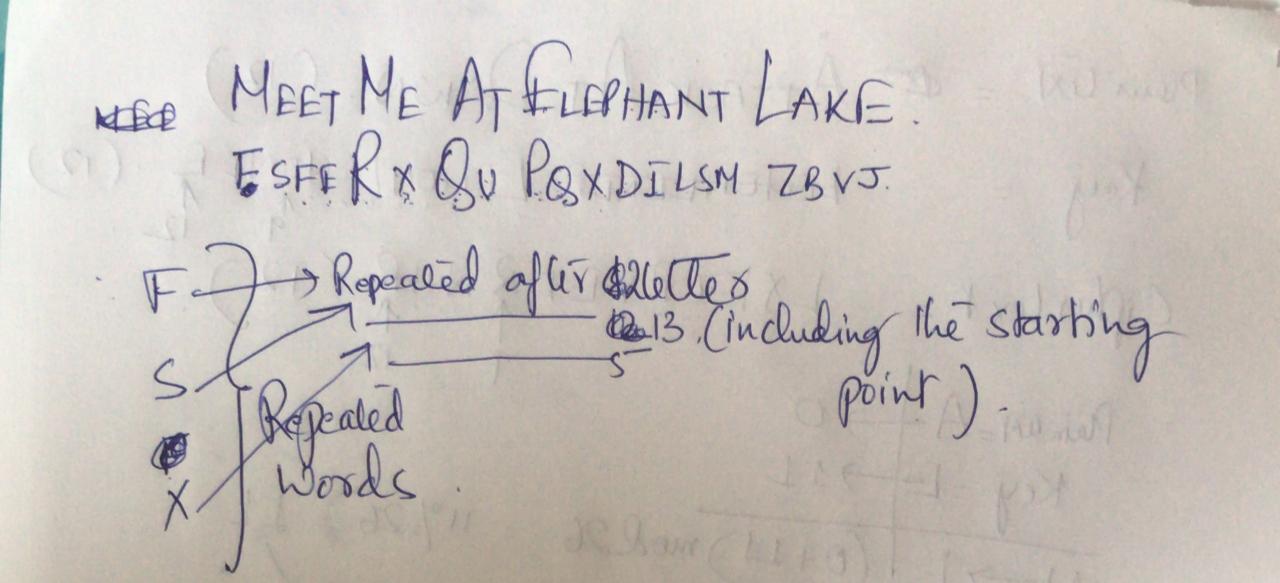 MEET ME AT ELEPHANT LAKE.
ESFERX QU PQXDILSM ZBVJ.
F → Repeated after 2 letters
S 13. (including the starting
X 5 point).
Repeated
words.